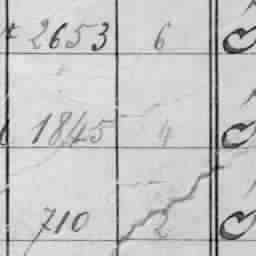 2653 6
1845 4
710 2